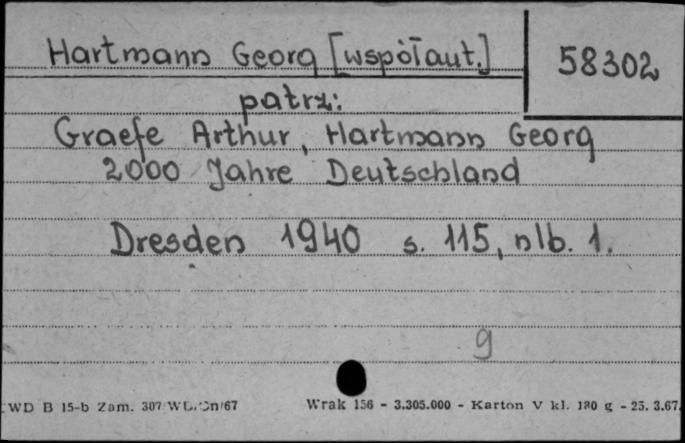 Hartmann Georg [współaut.]
58302
patrz:
Graefe Arthur, Hartmann Georg
2000 Jahre Deutschland
Dresden 1940 s. 115, nlb. 1.
g
WD B 15-b Zam. 307 /67
Wrak 156 - 3.305.000 - Karton V kl. 180 g - 25. 3.67.